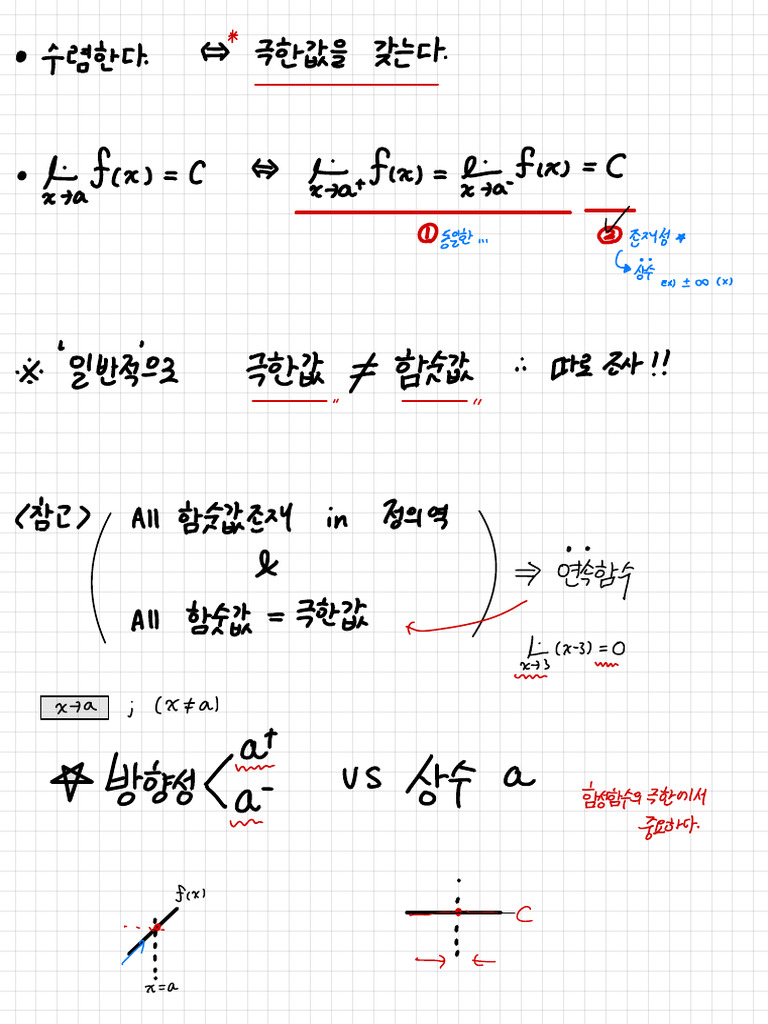 • 수렴한다. ⇔ * 극한값을 갖는다.
• lim x→a f(x) = C ⇔ lim x→a⁺ f(x) = lim x→a⁻ f(x) = C
① 동일한 ... ② 존재성 ★
↳ 상수 ±∞ (x)
※ '일반적'으로 극한값 ≠ 함숫값 ∴ 따로 조사!!
<참고> ( All 함숫값존재 in 정의역
&
All 함숫값 = 극한값 ) ⇒ 연속함수
lim x→3 (x-3) = 0
x→a ; (x≠a)
☆ 방향성 < a⁺ a⁻ vs 상수 a
합성함수의 극한에서
중요하다.
f(x)
x=a
C